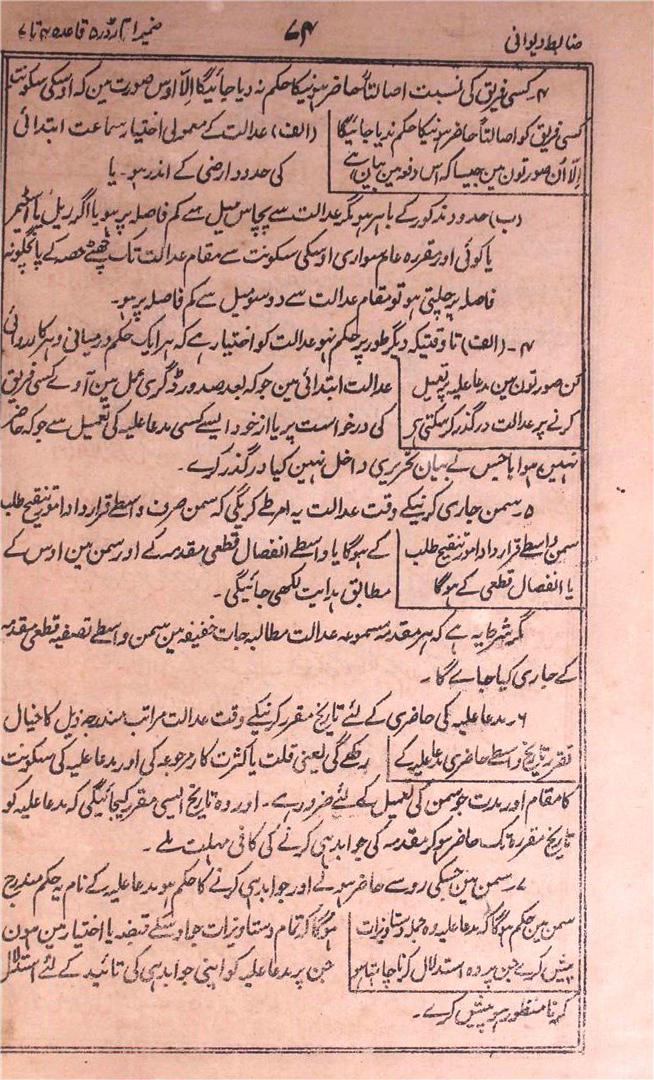 ضابطہ دیوانی
۷۴
ضمیمہ ا آرڈر ۵ قاعدہ ۴ تا ۷
۴۔ کسی فریق کی نسبت اصالتاً حاضر ہونیکا حکم نہ دیا جائیگا اِلّا اوس صورت مین کہ اوسکی سکونت
کسی فریق کو اصالتاً حاضر ہونیکا حکم ندیا جائیگا
اِلّا اُن صورتون مین جیسا کہ اس دفعہ مین بیان ہے
(الف) عدالت کے معمولی اختیار سماعت ابتدائی
کی حدود ارضی کے اندر ہو۔ یا
(ب) حدود مذکور کے باہر ہو مگر عدالت سے پچاس میل سے کم فاصلہ پر ہو یا اگر ریل یا اسٹیمر
یا کوئی اور مقررہ عام سواری اوسکی سکونت سے مقام عدالت تک چھٹے حصہ کے پانچگونہ
فاصلہ پر چلتی ہو تو مقام عدالت سے دو سو میل سے کم فاصلہ پر ہو۔
۴۔ (الف) تاوقتیکہ دیگر طور پر حکم نہو عدالت کو اختیار ہے کہ ہر ایک حکم درمیانی و ہر کارروائی
کن صورتون مین مدعا علیہ پر تعمیل
کرنے پر عدالت درگذر کر سکتی ہے
عدالت ابتدائی مین جو کہ بعد صدور ڈگری عمل مین آوے کسی فریق
کی درخواست پر یا از خود ایسے کسی مدعا علیہ کی تعمیل سے جو کہ حاضر
نہین ہوا یا جس نے بیان تحریری داخل نہین کیا درگذر کرے۔
۵۔ سمن جاری کرنیکے وقت عدالت یہ امر طے کریگی کہ سمن صرف واسطے قرارداد امور تنقیح طلب
سمن واسطے قرارداد امور تنقیح طلب
یا انفصال قطعی کے ہوگا
کے ہوگا یا واسطے انفصال قطعی مقدمہ کے اور سمن مین اوس کے
مطابق ہدایت لکھی جائیگی۔
مگر شرط یہ ہے کہ ہر مقدمہ مسموعہ عدالت مطالبہ جات خفیفہ مین سمن واسطے تصفیہ قطعی مقدمہ
کے جاری کیا جاے گا۔
۶۔ مدعا علیہ کی حاضری کے لئے تاریخ مقرر کرنیکے وقت عدالت مراتب مندرجہ ذیل کا خیال
تقرر تاریخ واسطے حاضری مدعا علیہ کے
رکھے گی یعنی قلت یا کثرت کار مرجوعہ کی اور مدعا علیہ کی سکونت
کا مقام اور مدت جو سمن کی تعمیل کے لئے ضرور ہے۔ اور وہ تاریخ ایسی مقرر کیجائیگی کہ مدعا علیہ کو
تاریخ مقررہ تک حاضر ہو کر مقدمہ کی جوابدہی کرنے کی کافی مہلت ملے۔
۷۔ سمن مین جسکی رو سے حاضر ہونے اور جوابدہی کرنے کا حکم ہو مدعا علیہ کے نام یہ حکم مندرج
سمن مین حکم ہوگا کہ مدعا علیہ وہ جملہ دستاویزات
پیش کرے جن پر وہ استدلال کرنا چاہتا ہو
ہوگا کہ تمام دستاویزات جو اوسکے قبضہ یا اختیار مین ہون
جن پر مدعا علیہ کو اپنی جوابدہی کی تائید کے لئے استدلال
کرنا منظور ہو پیش کرے۔